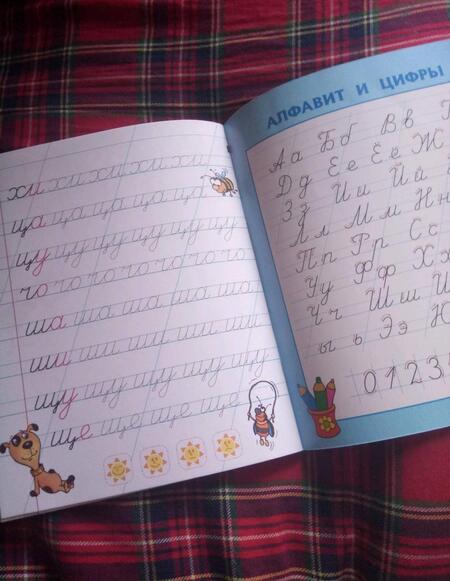 хи хи хи хи хи
ца ца ца ца ца
цу цу цу цу цу цу
чо чо чо чо чо чо чо
ша ша ша ша ша
ши ши ши ши ши
щу щу щу щу щу
ще ще ще ще
АЛФАВИТ И ЦИФРЫ
Аа Бб Вв
Дд Ее Ёё Ж
Зз Ии Йй
Лл Мм Нн
Пп Рр Сс
Уу Фф Хх
Чч Шш Щ
ы ь Ээ Ю
0 1 2 3